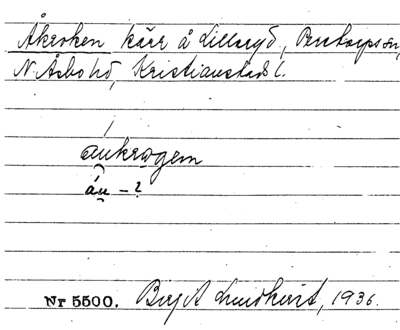 Åkroken kärr å Lillaryd, Perstorps sn,
N. Åsbo hd, Kristianstads l.
áukrogem
áu – ?
Nr 5500. Birgit Lundkvist, 1936.